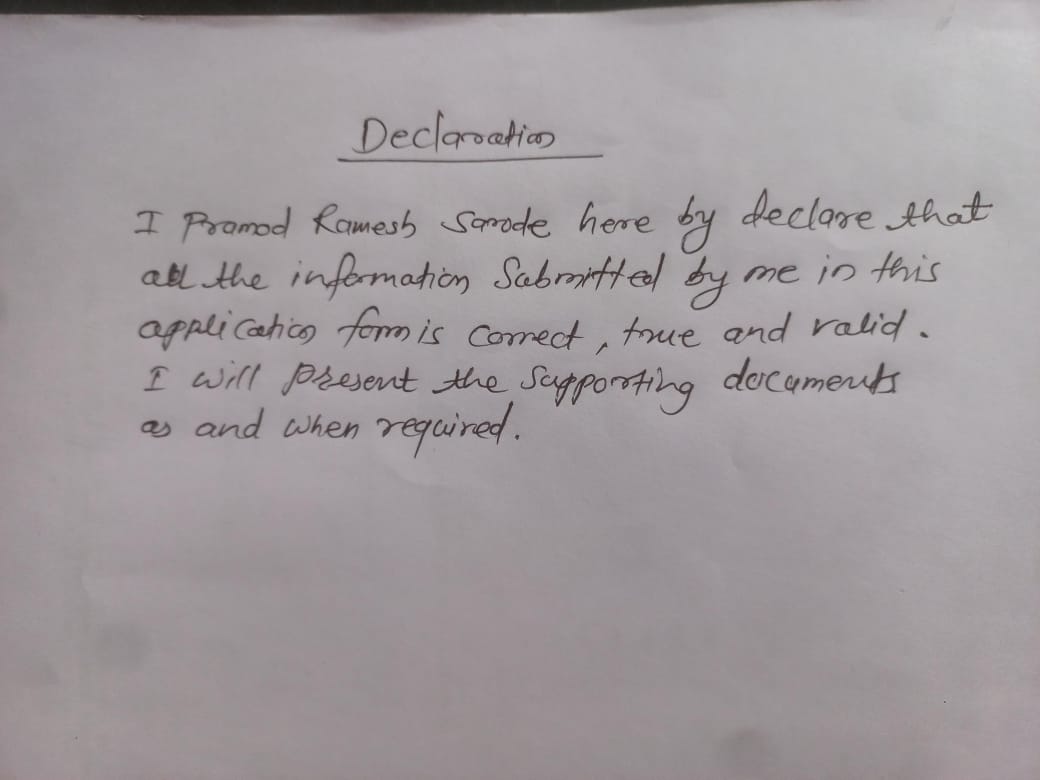 Declaration
I Pramod Ramesh Sarode here by declare that
all the information Submitted by me in this
application form is correct, true and valid.
I will present the supporting documents
as and when required.